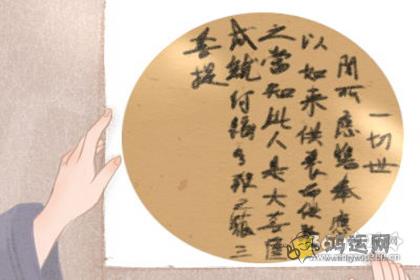 一切世
間所應瞻奉應
以如来供養而供養
之當知此人是大菩薩
成就阿耨多羅三藐三
菩提
鸿运网